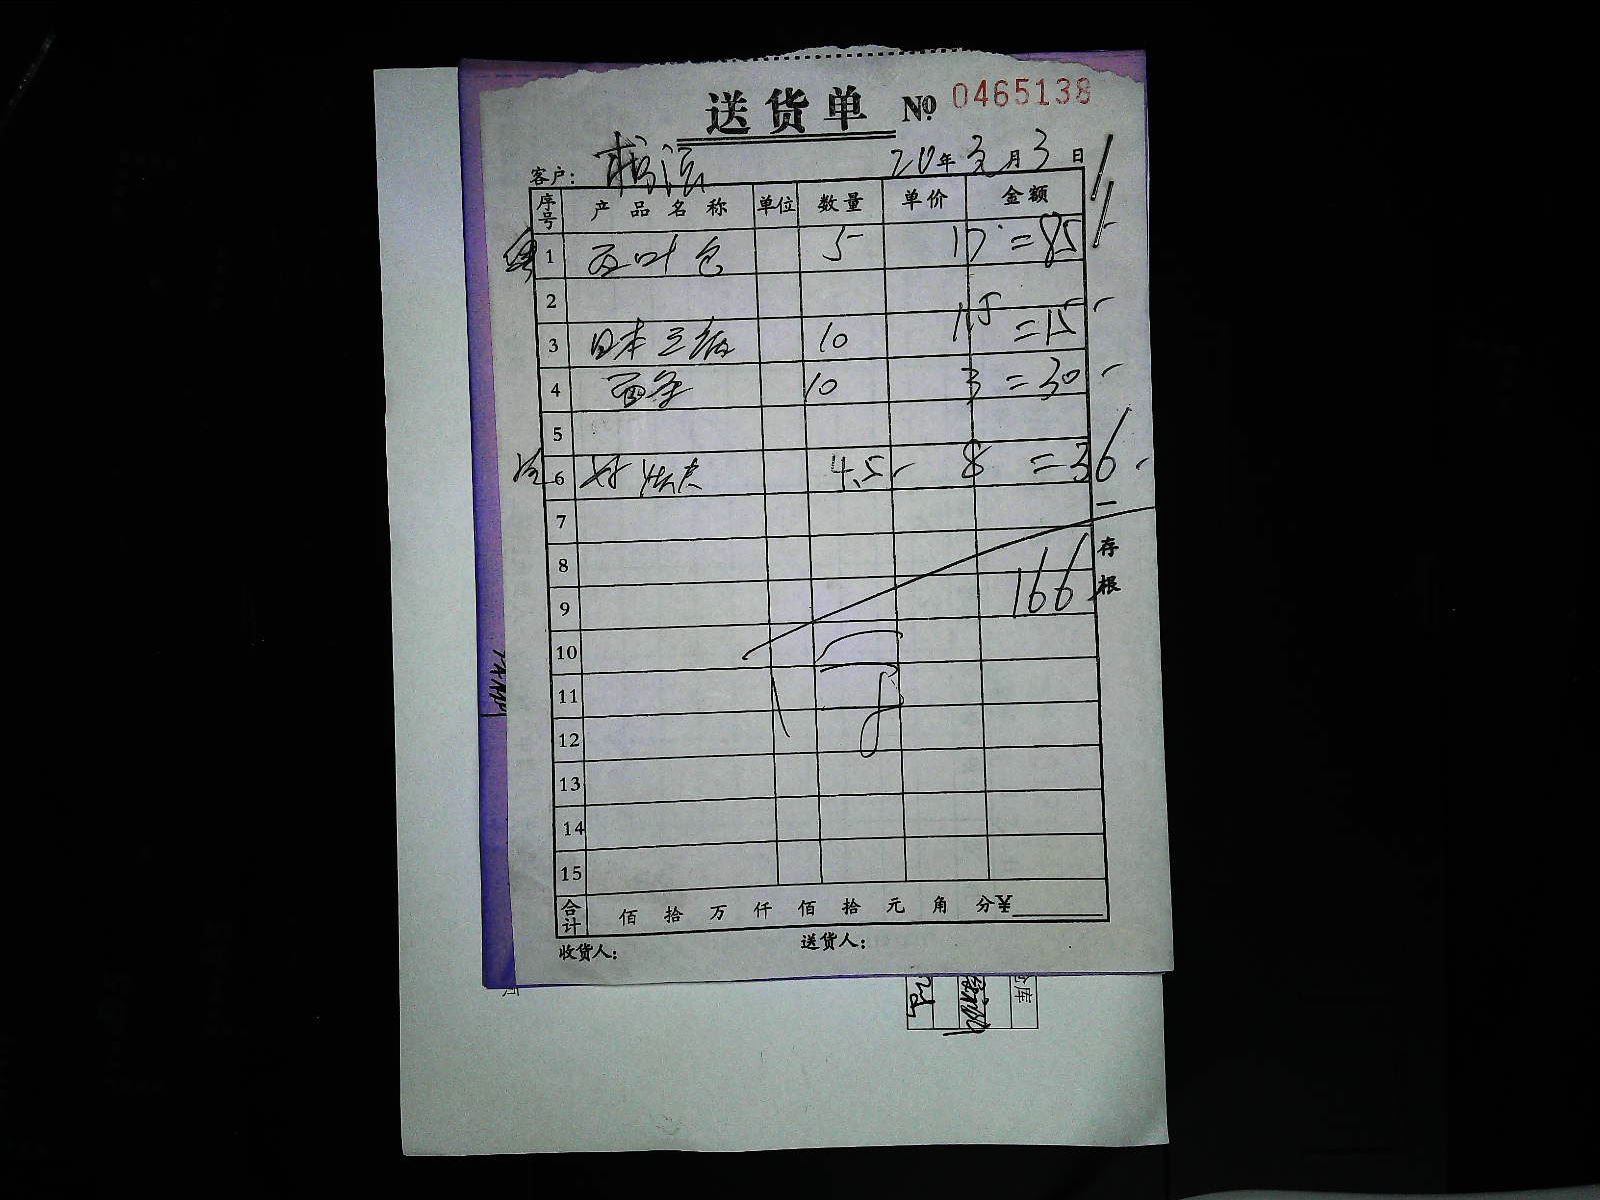 送货单 № 0465138
客户: 20年 月3日
序号 产品名称 单位 数量 单价 金额
1 5 17 =85
2
3 日本豆腐 10 1.5 =15
4 面条 10 3 =30
5
6 4.5 8 =36
7
8
9 166
10
11
12
13
14
15
合计 佰 拾 万 仟 佰 拾 元 角 分¥
收货人: 送货人:
存根
仓库